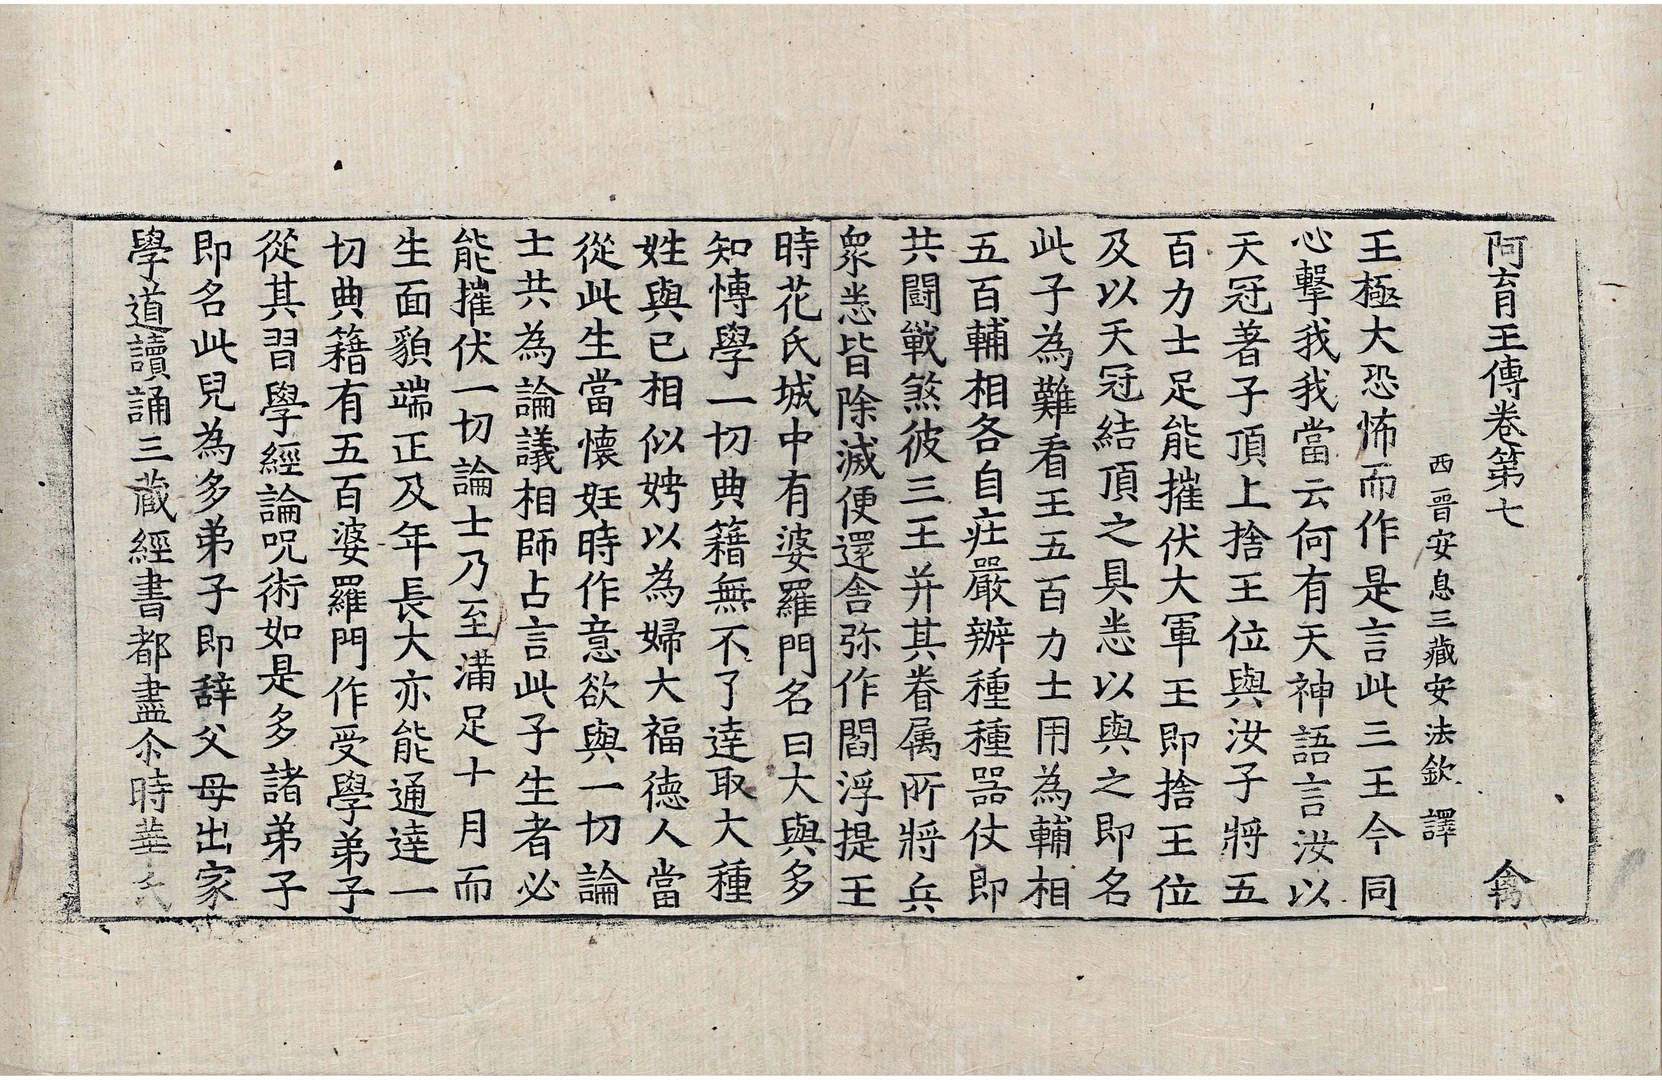 阿育王傳卷第七　禽
西晉安息三藏安法欽譯
王極大恐怖而作是言此三王今同
心擊我我當云何有天神語言汝以
天冠著子頂上捨王位與汝子將五
百力士足能摧伏大軍王即捨王位
及以天冠結頂之具悉以與之即名
此子為難看王五百力士用為輔相
五百輔相各自庄嚴辦種種器仗即
共鬪戰煞彼三王并其眷属所將兵
衆悉皆除滅便還舍弥作閻浮提王
時花氏城中有婆羅門名曰大與多
知愽學一切典籍無不了達取大種
姓與已相似娉以為婦大福德人當
從此生當懷妊時作意欲與一切論
士共為論議相師占言此子生者必
能摧伏一切論士乃至滿足十月而
生面貌端正及年長大亦能通達一
切典籍有五百婆羅門作受學弟子
從其習學經論呪術如是多諸弟子
即名此兒為多弟子即辞父母出家
學道讀誦三藏經書都盡尒時華氏